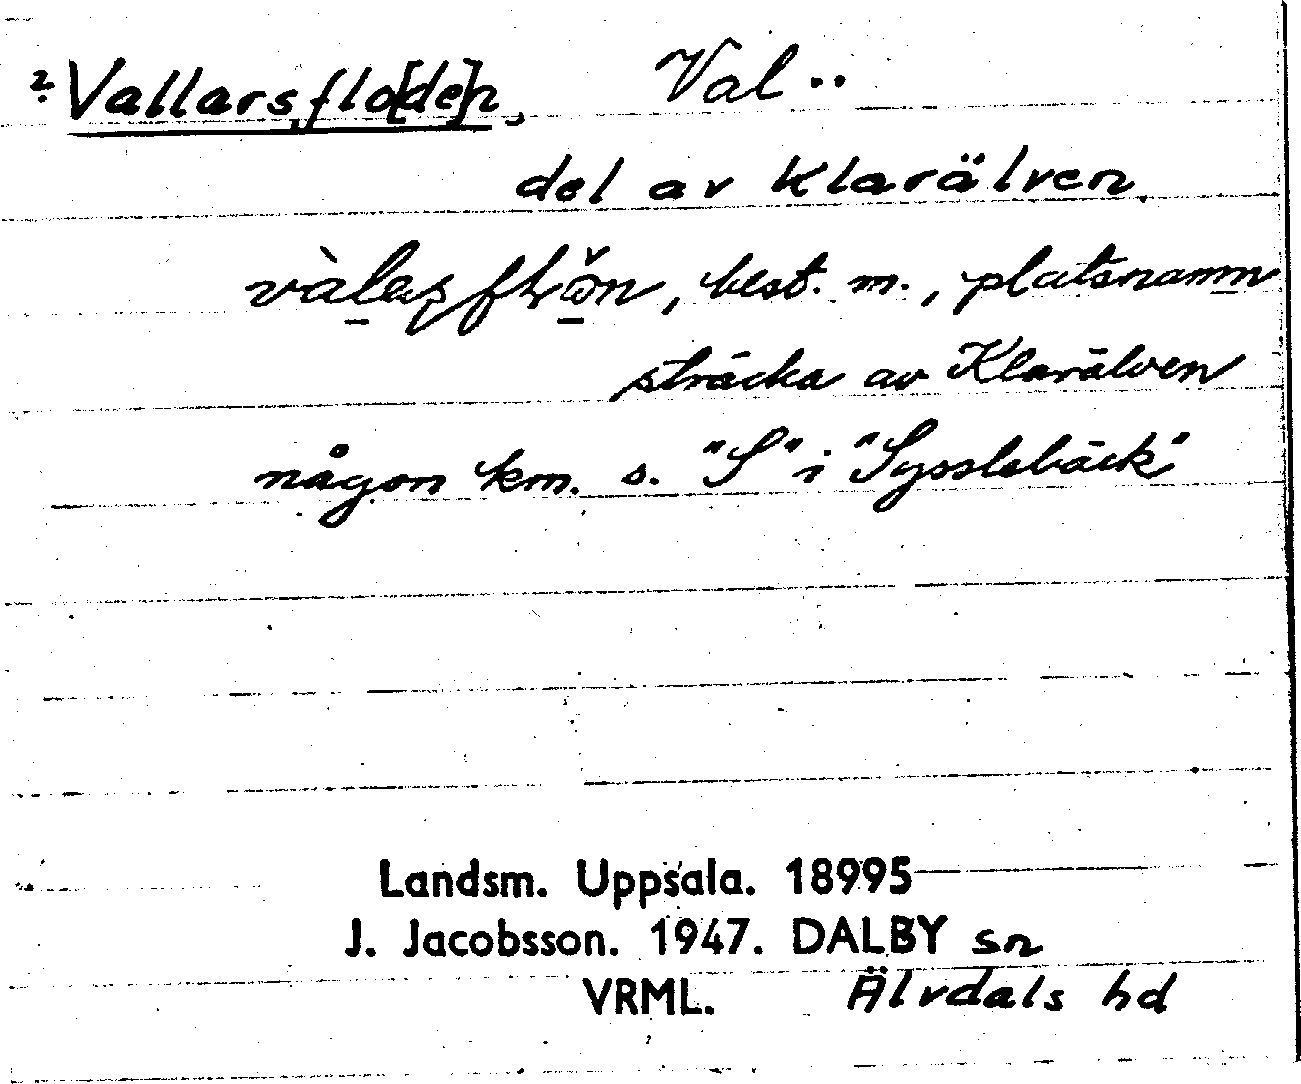 ? Vallarsflo[de]n, Val..
del av Klarälven
best. m., platsnamn
sträcka av Klarälven
någon km. s. "S" i "Sysslebäck"
Landsm. Uppsala. 18995
J. Jacobsson. 1947. DALBY sn
VRML. Älvdals hd